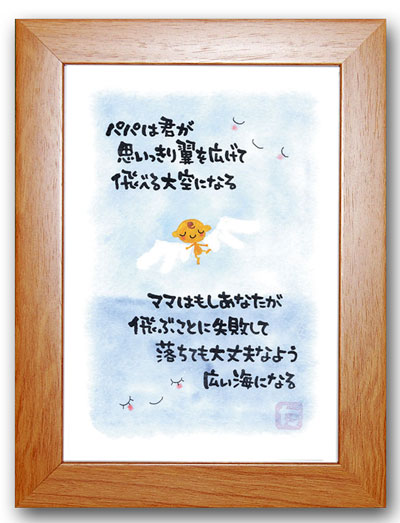 パパは君が
思いっきり翼を広げて
飛べる大空になる
ママはもしあなたが
飛ぶことに失敗して
落ちても大丈夫なよう
広い海になる
た